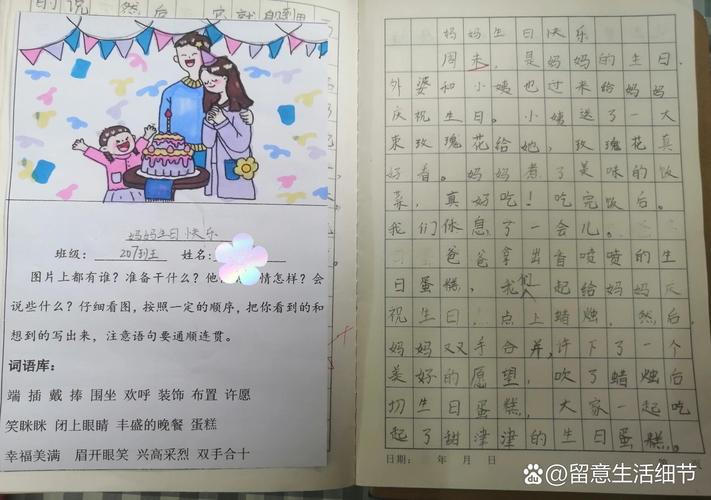 的说 然后
妈妈生日快乐
班级： 207班 姓名：
图片上都有谁？准备干什么？他 情怎样？会
说些什么？仔细看图，按照一定的顺序，把你看到的和
想到的写出来，注意语句要通顺连贯。
词语库：
端 插 戴 捧 围坐 欢呼 装饰 布置 许愿
笑眯眯 闭上眼睛 丰盛的晚餐 蛋糕
幸福美满 眉开眼笑 兴高采烈 双手合十
妈妈生日快乐
周末，是妈妈的生日，
外婆和小姨也过来给妈妈
庆祝生日。小姨送了一大
束玫瑰花给她，玫瑰花真
好看。妈妈煮了美味的饭
菜，真好吃！吃完饭后，
我们休息了一会儿。
爸爸拿出香喷喷的生
日蛋糕，我们一起给妈妈庆
祝生日，点上蜡烛，然后，
妈妈双手合并，许下了一个
美好的愿望，吹了蜡烛后
切生日蛋糕，大家一起吃
起了甜津津的生日蛋糕。
日期： 年 月 日
留意生活细节